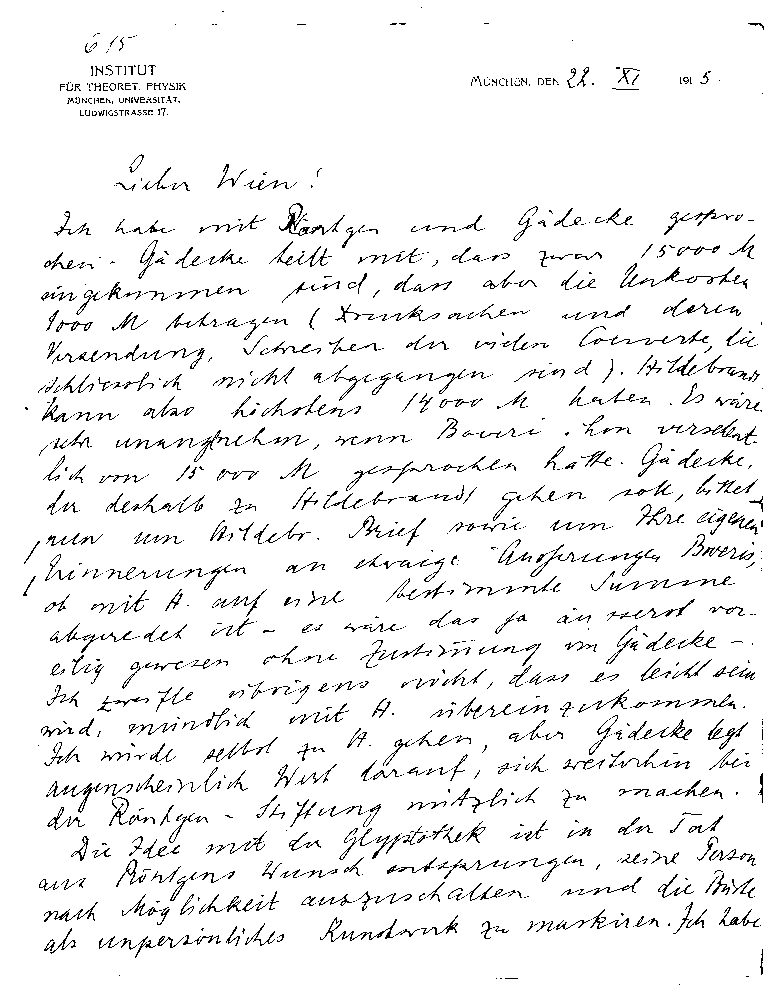 615
INSTITUT
FÜR THEORET. PHYSIK
MÜNCHEN, UNIVERSITÄT,
LUDWIGSTRASSE 17.
MÜNCHEN, DEN 22. XI 1915.
Lieber Wien!
Ich habe mit Röntgen und Gädecke gespro-
chen. Gädecke teilt mit, dass zwar 15000 M
eingekommen sind, dass aber die Unkosten
1000 M betragen (Drucksachen und deren
Versendung, Schreiben der vielen Couverte, die
schliesslich nicht abgegangen sind). Hildebrand
kann also höchstens 14000 M haben. Es wäre
sehr unangenehm, wenn Boveri ihm versehent-
lich von 15000 M gesprochen hätte. Gädecke,
der deshalb zu Hildebrand gehen soll, bittet
nun um Hildebr. Brief sowie um Ihre eigenen
Erinnerungen an etwaige Äusserungen Boveris,
ob mit H. auf eine bestimmte Summe
abgeredet ist – es wäre das ja äusserst vor-
eilig gewesen ohne Zustimmung von Gädecke –.
Ich zweifle übrigens nicht, dass es leicht sein
wird, mündlich mit H. übereinzukommen.
Ich würde selbst zu H. gehen, aber Gädecke legt
augenscheinlich Wert darauf, sich weiterhin bei
der Röntgen-Stiftung nützlich zu machen.
Die Idee mit der Glyptothek ist in der Tat
aus Röntgens Wunsch entsprungen, seine Person
nach Möglichkeit auszuschalten und die Büste
als unpersönliches Kunstwerk zu markiren. Ich habe